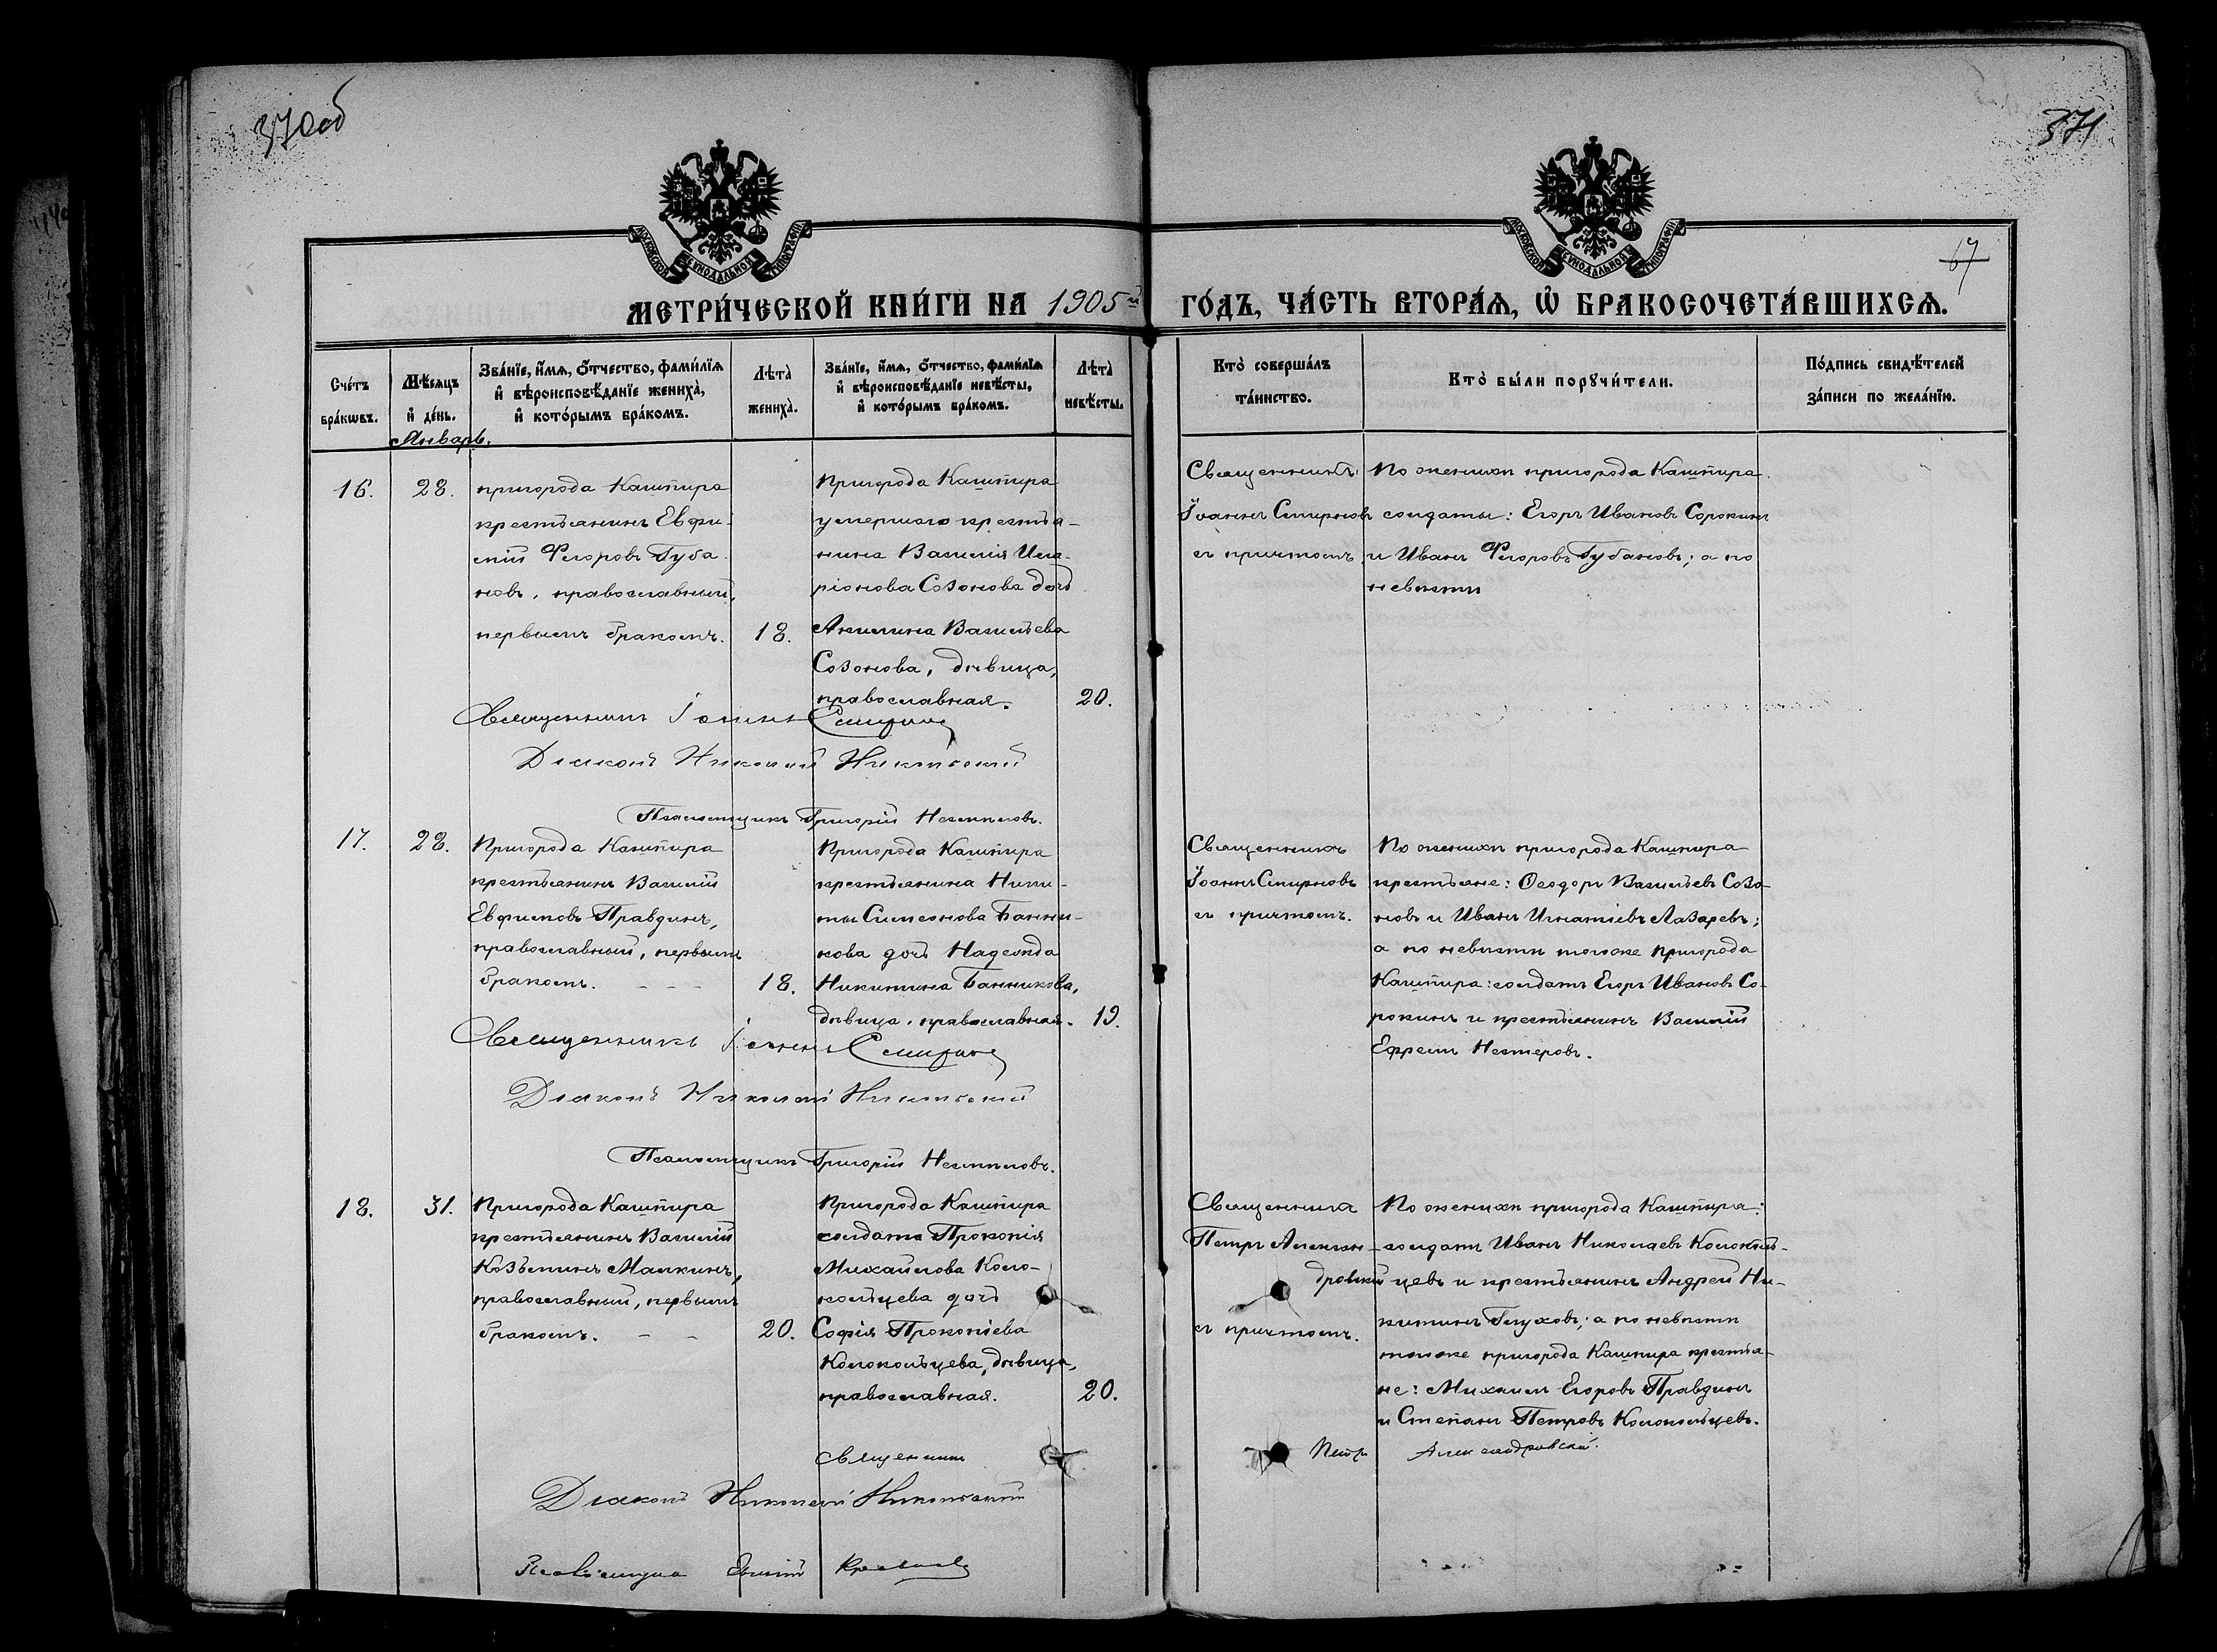 370об
371
67
МОСКОВСКОЙ СѴНОДАЛЬНОЙ ТИПОГРАФІИ
МОСКОВСКОЙ СѴНОДАЛЬНОЙ ТИПОГРАФІИ
МЕТРИ́ЧЕСКОЙ КНИ́ГИ НА 1905й ГО́ДЪ, ЧА́СТЬ ВТОРА́Я, Ѡ БРАКОСОЧЕТА́ВШИХСЯ.
Сче́тъ
бра́кѡвъ.
Мѣ́сяцъ
и҆ де́нь.
Январь.
Зва́нїе, и҆́мя, ѻ҆́тчество, фами́лїя
и҆ вѣроисповѣ́данїе жениха̀,
и҆ кото́рымъ бра́комъ.
Лѣта̀
жениха̀.
Зва́нїе, и҆́мя, ѻ҆́тчество, фами́лїя
и҆ вѣроисповѣ́данїе невѣ́сты,
и҆ кото́рымъ бра́комъ.
Лѣта̀
невѣ́сты.
Кто̀ соверша́лъ
та́инство.
Кто̀ бы́ли порꙋчи́тели.
По́дпись свидѣ́телей
за́писи по жела́нїю.
16.
28.
пригорода Кашпира
крестьянинъ Евфи-
мій Ѳеоровъ Губа-
новъ, православный,
первымъ бракомъ.
18.
Пригорода Кашпира
умершаго крестья-
нина Василія Ила-
ріонова Созонова дочь
Акилина Васильева
Созонова, дѣвица,
православная.
20.
Священникъ
Іоаннъ Смирновъ
съ причтомъ.
По женихѣ пригорода Кашпира
солдаты: Егоръ Ивановъ Сорокинъ
и Иванъ Ѳеоровъ Губановъ; а по
невѣстѣ
Священникъ Іоаннъ Смирновъ
Діаконъ Николай Никольскій
Псаломщикъ Григорій Несмѣловъ.
17.
28.
Пригорода Кашпира
крестьянинъ Василій
Евфимовъ Правдинъ,
православный, первымъ
бракомъ. - - -
18.
Пригорода Кашпира
крестьянина Ники-
ты Симеонова Банни-
кова дочь Надежда
Никитина Банникова,
дѣвица, православная.
19.
Священникъ
Іоаннъ Смирновъ
съ причтомъ.
По женихѣ пригорода Кашпира
крестьяне: Ѳеодоръ Васильевъ Созо-
новъ и Иванъ Игнатіевъ Лазаревъ;
а по невѣстѣ тоже пригорода
Кашпира: солдатъ Егоръ Ивановъ Со-
рокинъ и крестьянинъ Василій
Ефремъ Нестеровъ.
Священникъ Іоаннъ Смирновъ
Діаконъ Николай Никольскій
Псаломщикъ Григорій Несмѣловъ.
18.
31.
Пригорода Кашпира
крестьянинъ Василій
Козьминъ Малкинъ,
православный, первымъ
бракомъ. - -
20.
Пригорода Кашпира
солдата Прокопія
Михайлова Коло-
кольцева дочь
Софія Прокопіева
Колокольцева, дѣвица,
православная.
20.
Священника
Петръ Алексан-
дровскій
съ причтомъ.
По женихѣ пригорода Кашпира:
солдатъ Иванъ Николаевъ Колоколь-
цевъ и крестьянинъ Андрей Ни-
китинъ Глуховъ; а по невѣстѣ
тоже пригорода Кашпира крестья-
не: Михаилъ Егоровъ Правдинъ
и Степанъ Петровъ Колокольцевъ.
священникъ Петръ Александровскій.
Діаконъ Николай Никольскій